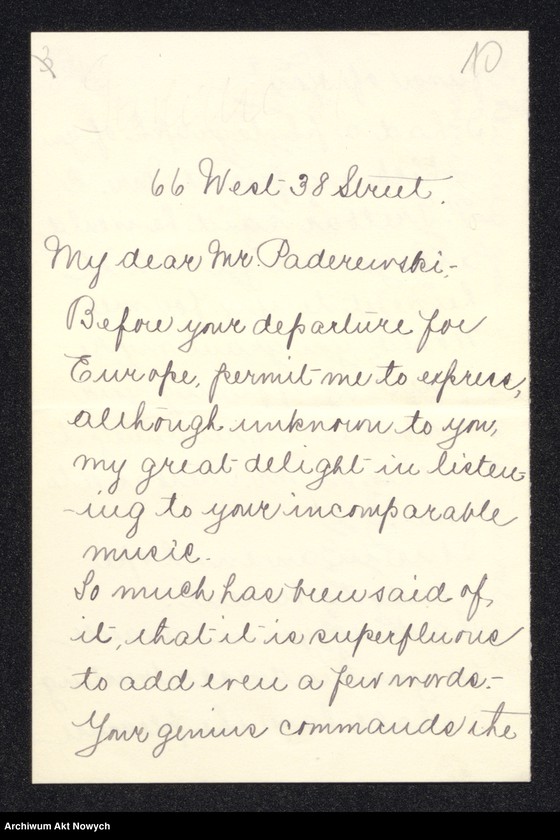 3
10
66 West 38 Street.
My dear Mr. Paderewski,-
Before your departure for
Europe, permit me to express,
although unknown to you,
my great delight in listen-
-ing to your incomparable
music.
So much has been said of
it, that it is superfluous
to add even a few words.-
Your genius commands the
Archiwum Akt Nowych